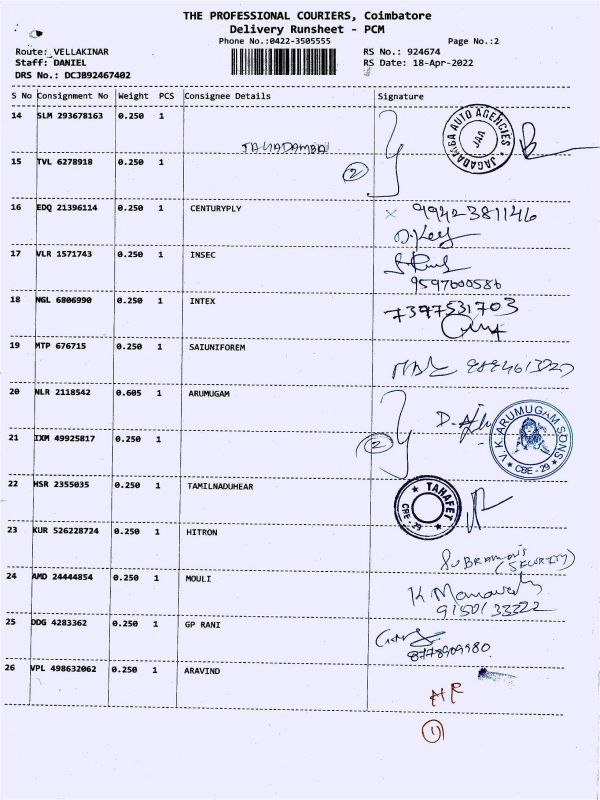 THE PROFESSIONAL COURIERS, Coimbatore
Delivery Runsheet - PCM
Phone No.:0422-3505555 Page No.:2
Route: VELLAKINAR RS No.: 924674
Staff: DANIEL RS Date: 18-Apr-2022
DRS No.: DCJB92467402
S No Consignment No Weight PCS Consignee Details Signature
14 SLM 293678163 0.250 1
JAGADAMBA
JAGADAMBA AUTO AGENCIES
15 TVL 6278918 0.250 1
2
16 EDQ 21396114 0.250 1 CENTURYPLY
x 9942381146
17 VLR 1571743 0.250 1 INSEC
9597600586
18 NGL 6806990 0.250 1 INTEX
7397531703
19 MTP 676715 0.250 1 SAIUNIFOREM
20 NLR 2118542 0.605 1 ARUMUGAM
V.K. ARUMUGAM SONS
CBE - 29
21 IXM 49925817 0.250 1
2
22 HSR 2355035 0.250 1 TAMILNADUHEAR
TAHAFET
CBE - 29
23 KUR 526228724 0.250 1 HITRON
(SECURITY)
24 AMD 24444854 0.250 1 MOULI
9150133222
25 DDG 4283362 0.250 1 GP RANI
8778909980
26 VPL 498632062 0.250 1 ARAVIND
1